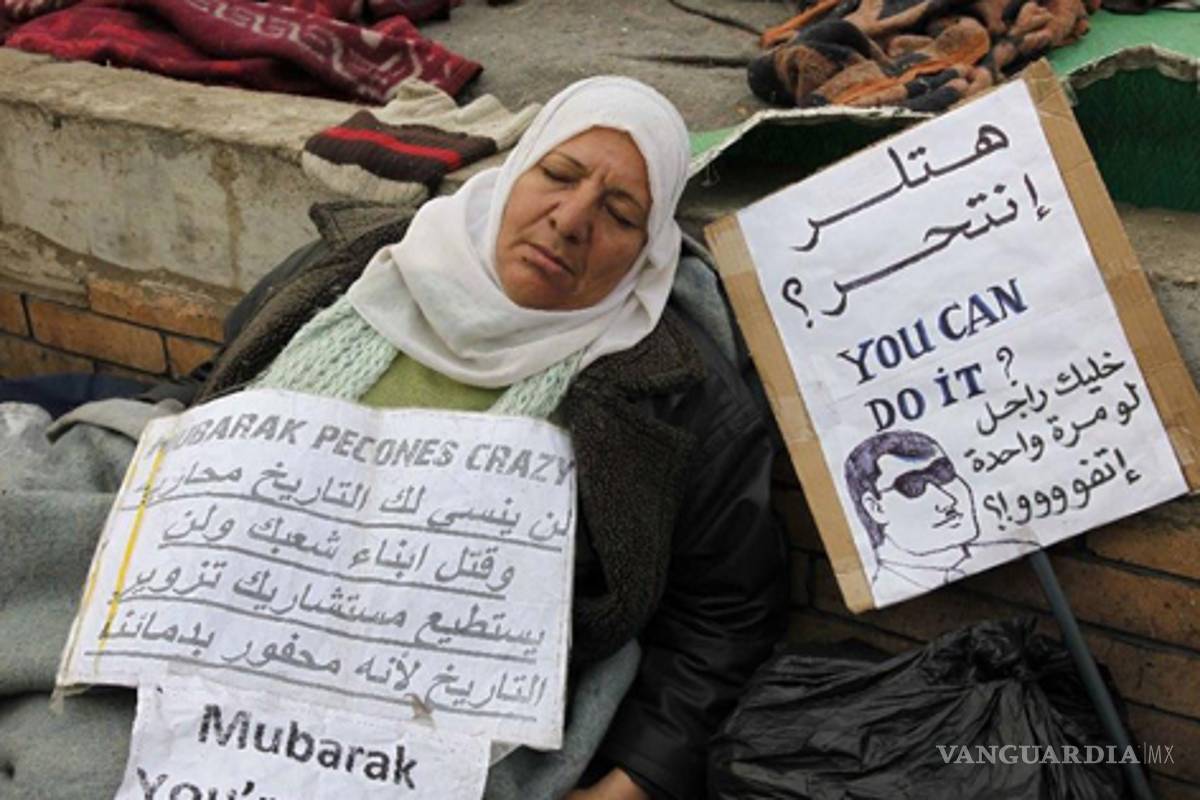 MUBARAK PECONES CRAZY
لن ينسي لك التاريخ محاربة
وقتل ابناء شعبك ولن
يستطيع مستشاريك تزوير
التاريخ لأنه محفور بدمائنا
Mubarak
You're
هتلر
إنتحر؟
YOU CAN
DO iT?
خليك راجل
لو مرة واحدة
إتفووووا!؟
VANGUARDIA|MX